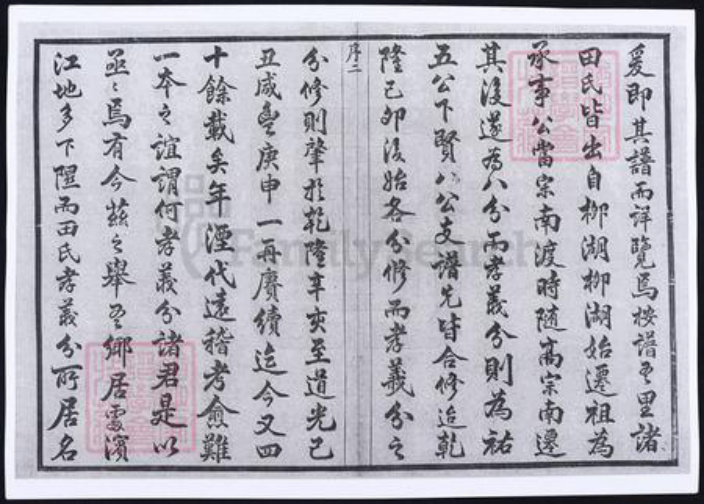 爰即其譜而詳覽焉按譜吾里諸
田氏皆出自柳湖柳湖始遷祖為
承事公當宋南渡時隨高宗南遷
其後遂為八分而孝義分則為祐
五公下賢八公支譜先皆合修迨乾
隆己卯後始各分修而孝義分之
序二
分修則肇於乾隆辛亥至道光己
丑咸豐庚申一再賡續迄今又四
十餘載矣年湮代遠稽考愈難
一本之誼謂何孝義分諸君是以
亟〻焉有今茲之舉吾鄉居處濱
江地多下隰而田氏孝義分所居名
FamilySearch